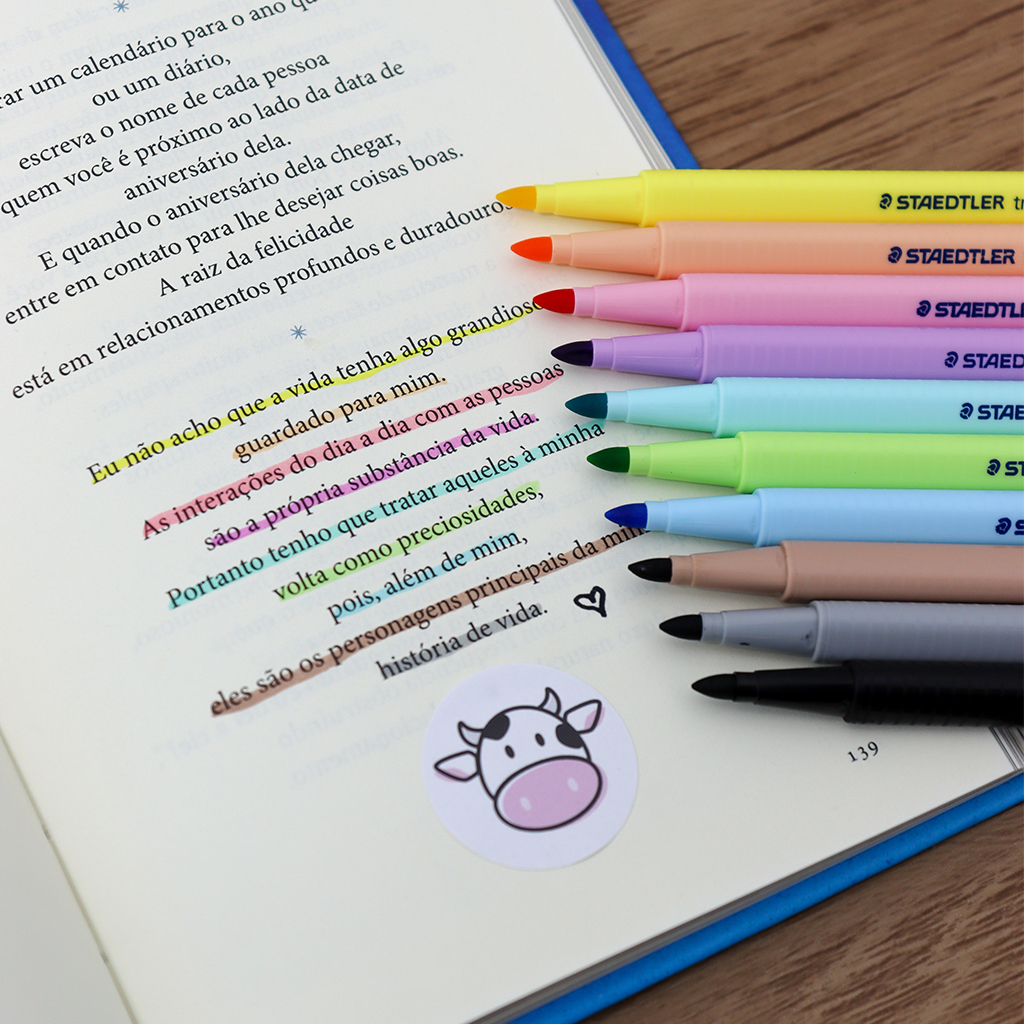 rar um calendário para o ano qu
ou um diário,
escreva o nome de cada pessoa
quem você é próximo ao lado da data de
aniversário dela.
E quando o aniversário dela chegar,
entre em contato para lhe desejar coisas boas.
A raiz da felicidade
está em relacionamentos profundos e duradouros
Eu não acho que a vida tenha algo grandioso
guardado para mim.
As interações do dia a dia com as pessoas
são a própria substância da vida.
Portanto tenho que tratar aqueles à minha
volta como preciosidades,
pois, além de mim,
eles são os personagens principais da minh
história de vida.
139
STAEDTLER tr
STAEDTLER
STAEDTL
STAED
STAE
ST
S